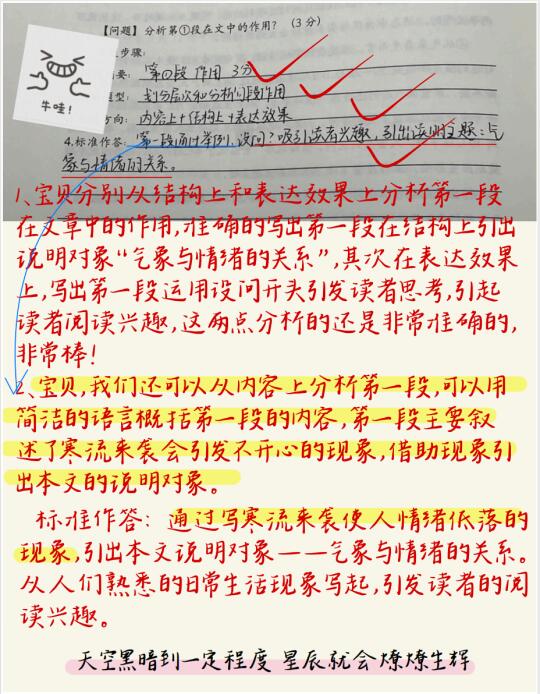 【问题】分析第①段在文中的作用?(3分)
步骤:
要: 第四段 作用 3分
型: 划分层次和分析问段作用
方向: 内容上+结构上+表达效果
牛哇!
4.标准作答: 第一段通过举例、设问?吸引读者兴趣,引出说明主题:气
象与情绪的关系。
1、宝贝分别从结构上和表达效果上分析第一段
在文章中的作用,准确的写出第一段在结构上引出
说明对象“气象与情绪的关系”,其次在表达效果
上,写出第一段运用设问开头引发读者思考,引起
读者阅读兴趣,这两点分析的还是非常准确的,
非常棒!
2、宝贝,我们还可以从内容上分析第一段,可以用
简洁的语言概括第一段的内容,第一段主要叙
述了寒流来袭会引发不开心的现象,借助现象引
出本文的说明对象。
标准作答:通过写寒流来袭使人情绪低落的
现象,引出本文说明对象——气象与情绪的关系。
从人们熟悉的日常生活现象写起,引发读者的阅
读兴趣。
天空黑暗到一定程度 星辰就会熠熠生辉